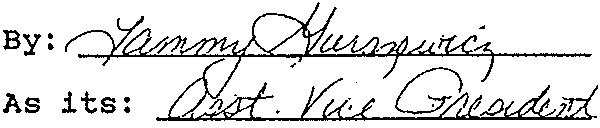 By: Tammy Gurszwicz
As its: Asst. Vice President